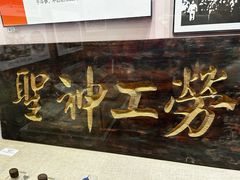 聖神工勞